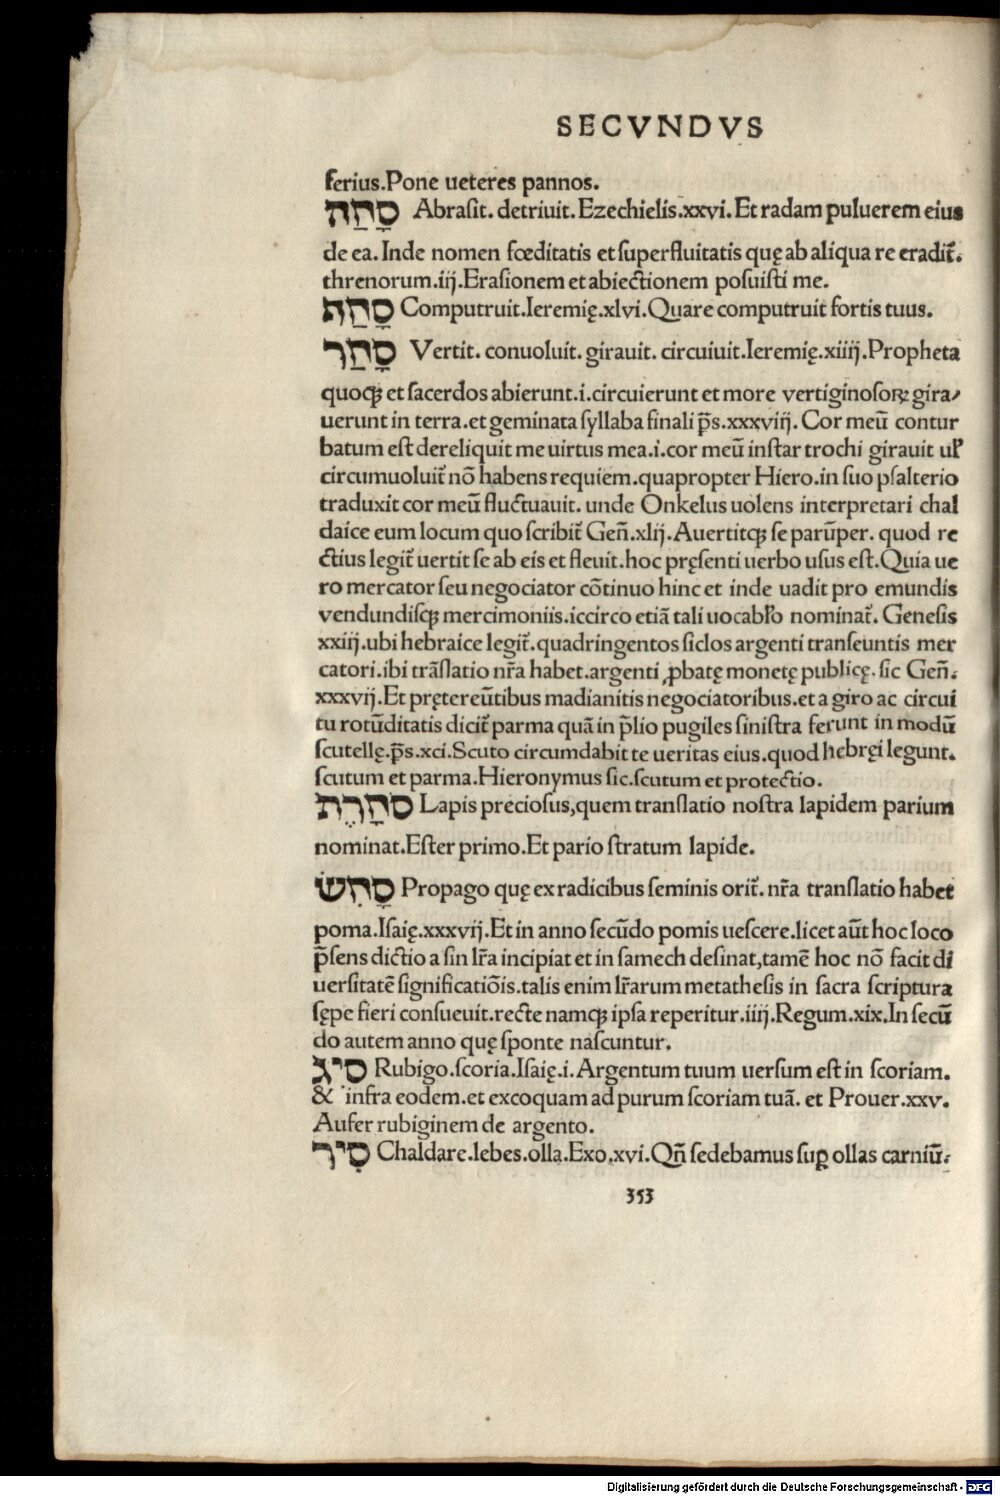 SECVNDVS
ferius.Pone ueteres pannos.
סָחַה Abrasit. detriuit. Ezechielis.xxvi. Et radam puluerem eius
de ea. Inde nomen fœditatis et superfluitatis quę ab aliqua re eradit̃.
threnorum.iij.Erasionem et abiectionem posuisti me.
סָחַה Computruit.Ieremię.xlvi.Quare computruit fortis tuus.
סָחַר Vertit. conuoluit. girauit. circuiuit.Ieremię.xiiij.Propheta
quoqꝫ et sacerdos abierunt.i.circuierunt et more vertiginosoꝝ gira/
uerunt in terra.et geminata syllaba finali p̃s.xxxvij. Cor meũ contur
batum est dereliquit me uirtus mea.i.cor meũ instar trochi girauit ul̃
circumuoluit̃ nõ habens requiem.quapropter Hiero.in suo psalterio
traduxit cor meũ fluctuauit. unde Onkelus uolens interpretari chal
daice eum locum quo scribit̃ Geñ.xlij.Auertitqꝫ se parũper. quod re
ctius legit̃ uertit se ab eis et fleuit.hoc pręsenti uerbo usus est.Quia ue
ro mercator seu negociator cõtinuo hinc et inde uadit pro emundis
vendundisqꝫ mercimoniis.iccirco etiã tali uocabl̃o nominat̃. Genesis
xxiij.ubi hebraice legit̃.quadringentos siclos argenti transeuntis mer
catori.ibi trãslatio nr̃a habet.argenti ꝓbatę monetę publicę. sic Geñ.
xxxvij.Et pretereũtibus madianitis negociatoribus.et a giro ac circui
tu rotũditatis dicit̃ parma quã in p̃lio pugiles sinistra ferunt in modũ
scutellę.p̃s.xci.Scuto circumdabit te ueritas eius.quod hebręi legunt.
scutum et parma.Hieronymus sic.scutum et protectio.
סֹחָרֶת Lapis preciosus,quem translatio nostra lapidem parium
nominat.Ester primo.Et pario stratum lapide.
סָחִשׁ Propago quę ex radicibus seminis orit̃. nr̃a translatio habet
poma.Isaię.xxxvij.Et in anno secũdo pomis uescere.licet aũt hoc loco
p̃sens dictio a sin lr̃a incipiat et in samech desinat,tamẽ hoc nõ facit di
uersitatẽ significatiõis.talis enim lr̃arum metathesis in sacra scriptura
sępe fieri consueuit.recte namqꝫ ipsa reperitur.iiij.Regum.xix.In secũ
do autem anno quę sponte nascuntur.
סִיג Rubigo.scoria.Isaię.i.Argentum tuum uersum est in scoriam.
& infra eodem.et excoquam ad purum scoriam tuã. et Prouer.xxv.
Aufer rubiginem de argento.
סִיר Chaldare.lebes.olla.Exo.xvi.Qñ sedebamus suꝑ ollas carniũ.
353
Digitalisierung gefördert durch die Deutsche Forschungsgemeinschaft - DFG